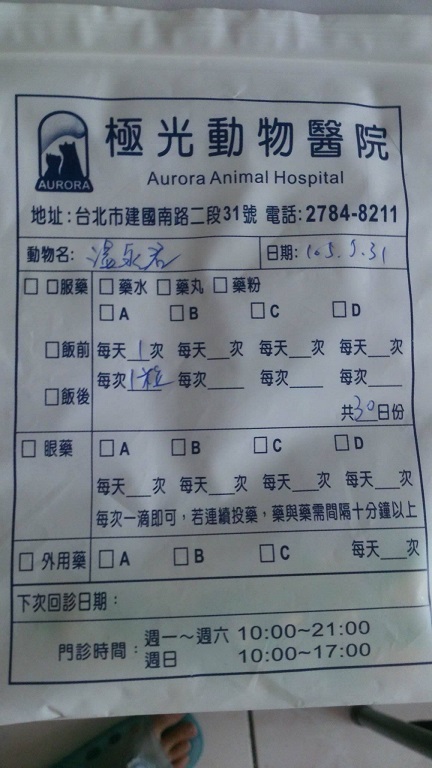 極光動物醫院
AURORA
Aurora Animal Hospital
地址:台北市建國南路二段31號 電話:2784-8211
動物名: 溫永君 日期: 105.5.31
□ 口服藥 □ 藥水 □ 藥丸 □ 藥粉
□ A □ B □ C □ D
□飯前 每天 1 次 每天___次 每天___次 每天___次
□飯後 每次 1粒 每次____ 每次____ 每次____
共30日份
□ 眼藥 □ A □ B □ C □ D
每天___次 每天___次 每天___次 每天___次
每次一滴即可,若連續投藥,藥與藥需間隔十分鐘以上
□ 外用藥 □ A □ B □ C 每天___次
下次回診日期:
門診時間: 週一~週六 10:00~21:00
週日 10:00~17:00